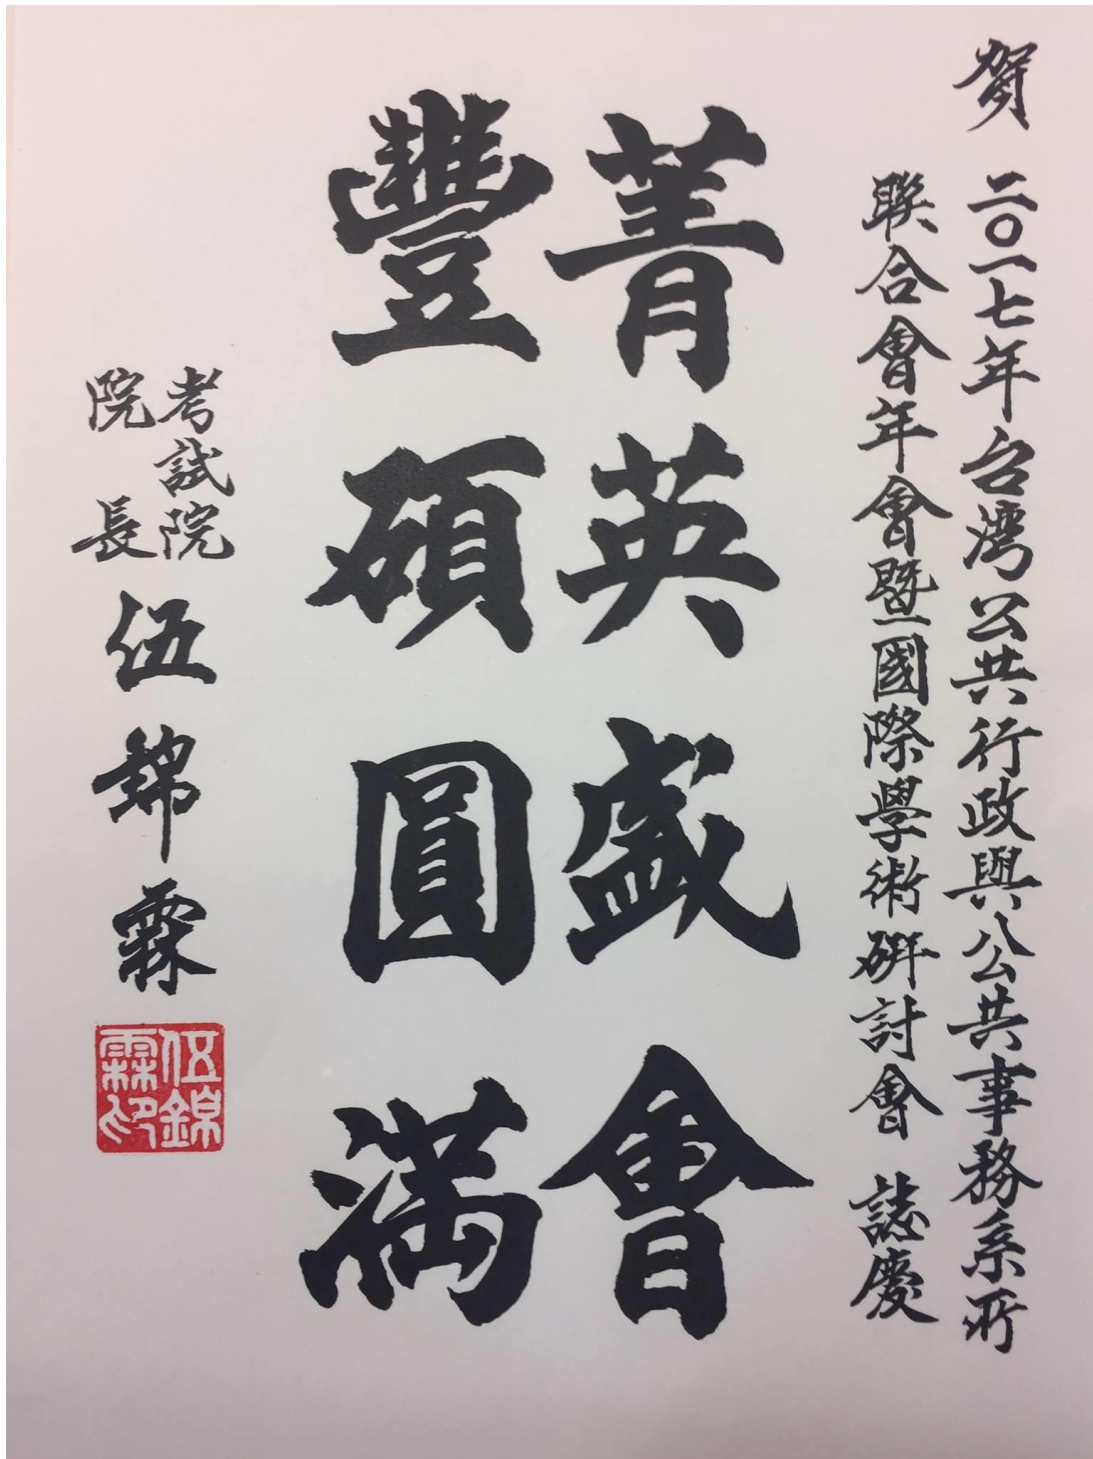 賀 二〇一七年台灣公共行政與公共事務系所
聯合會年會暨國際學術研討會 誌慶
菁英盛會
豐碩圓滿
考試院
院長
伍錦霖
伍錦
霖印